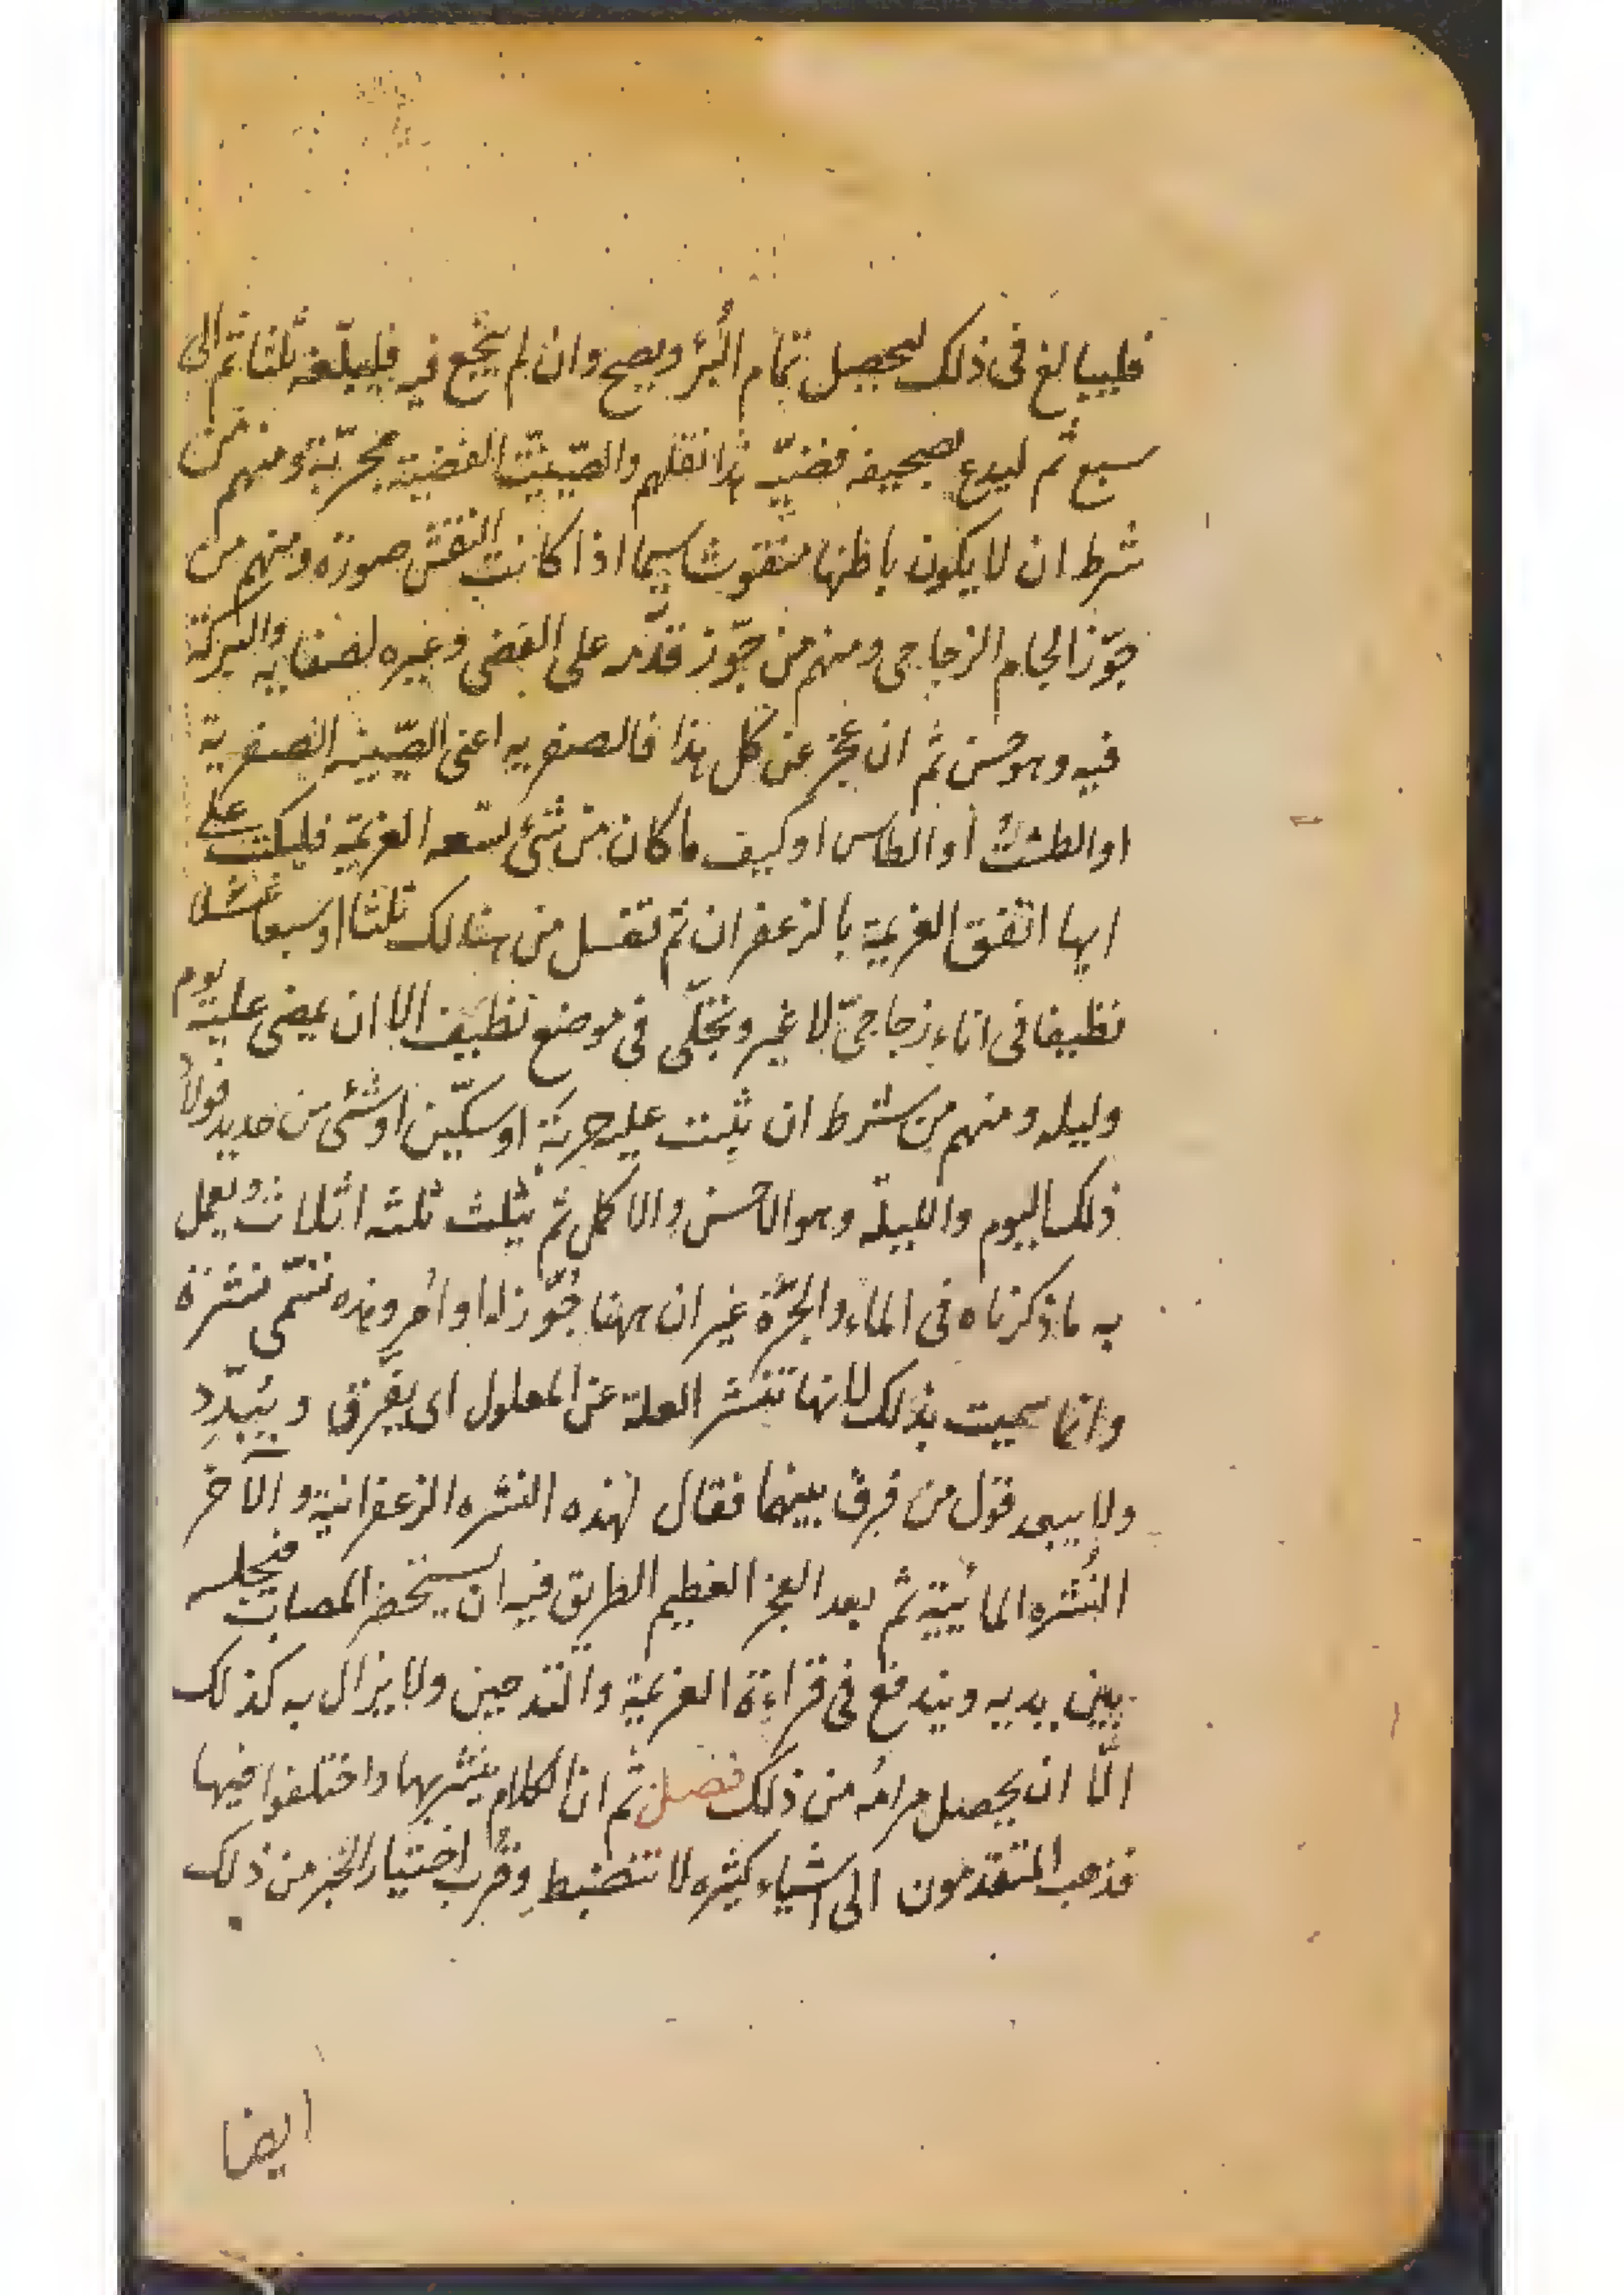 فليبالغ فى ذلك ليحصل تمام البُرْ ويصح وان لم ينجع فيه فليبلّغه ثلثا ثم الى
سبع ثم ليدع بصحيفه فضيّه هذا نقلهم والصّينيّة الفضيّة مجرّبة ومنهم من
شرط ان لا يكون باطنها منقوشا سيما اذا كانت النقش صورة ومنهم من
جوّز الجام الزجاجى ومنهم من جوّز قدّمه على الفضى وغيره لصفايه والبركة
فيه وهو حسن ثم ان عجز عن كل هذا فالصفريه اعنى الصّينيه الصفرية
او الطشت أو الطاس او كيف ما كان من شئ لتسعه العزيمة فليكتب على
ايها اتفق العزيمة بالزعفران ثم تغسل من هنالك ثلثا او سبعا غسلا
نظيفا فى اناء زجاجىّ لا غير ويخلّى فى موضع نظيف الا ان يمضى عليه يوم
وليله ومنهم من شرط ان يثبت عليه حربة او سكّين او شئ من حديد فولاذ
ذلك اليوم والليلة وهو الاحسن والاكمل ثم يثلث ثلثه اثلاث ويعمل
به ما ذكرناه فى الماء والجرّة غير ان ههنا جُوّز له اوامُر وهذه تسمّى نشرة
وانما سميت بذلك لانها تنشر العلة عن المعلول اى يفرّق ويُبدِّد
ولا يبعد قول من فرق بينهما فقال لهذه النشره الزعفرانية والآخر
النُشره المائيية ثم بعد العجز العظيم الطريق فيه ان يستحضر المصاب فيجلسه
بين يديه ويندفع فى قراءة العزيمة والتدخين ولا يزال به كذلك
الّا ان يحصل مرامُه من ذلك فصل ثم انّ الكلام ينشرها واختلفوا فيها
فذهب المتقدمون الى اشياء كثيره لا تنضبط وقرُب اختيار الخبر من ذلك
ايضا